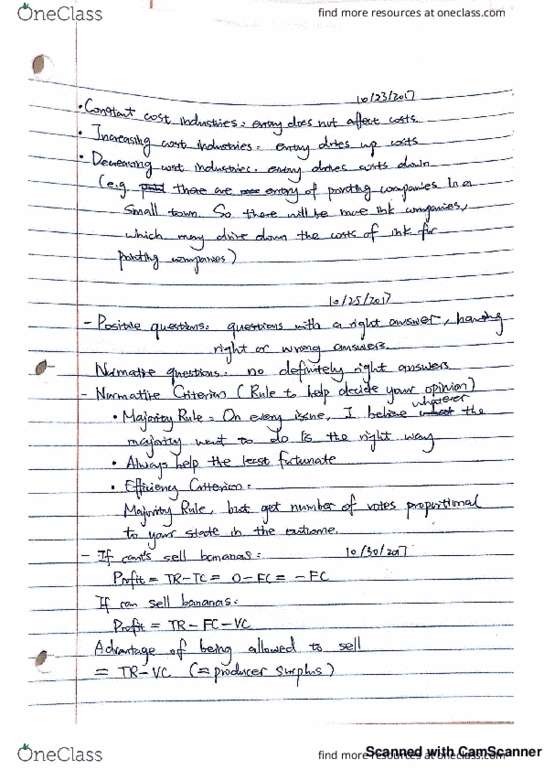 OneClass
find more resources at oneclass.com
10/23/2017
• Constant cost industries: entry does not affect costs.
• Increasing cost industries: entry drives up costs
• Decreasing cost industries: entry drives costs down
(e.g. there are entry of printing companies in a
small town. So there will be more ink companies,
which may drive down the costs of ink for
printing companies)
10/25/2017
- Positive questions: questions with a right answer, having
right or wrong answers.
Normative questions: no definitely right answers
- Normative Criterion (Rule to help decide your opinion)
• Majority Rule = On every issue, I believe whatever the
majority want to do is the right way
• Always help the least fortunate
• Efficiency Criterion:
Majority Rule, but get number of votes proportional
to your stake in the outcome.
- If can't sell bananas: 10/30/2017
Profit = TR-TC = 0-FC = -FC
If can sell bananas:
Profit = TR-FC-VC
Advantage of being allowed to sell
= TR-VC (= producer surplus)
OneClass
find more resources at oneclass.com
Scanned with CamScanner